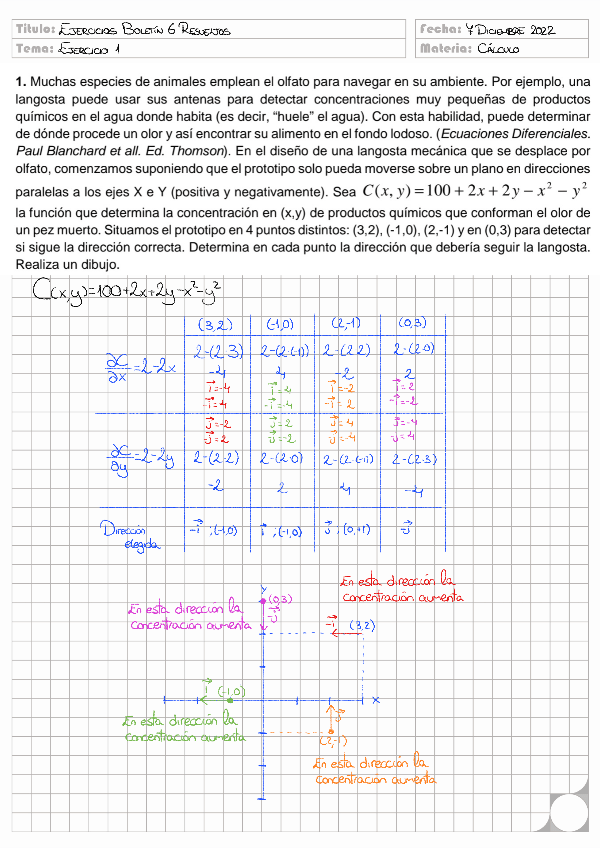 Título: EJERCICIOS BOLETÍN 6 RESUELTOS
Fecha: 7 DICIEMBRE 2022
Tema: EJERCICIO 1
Materia: CÁLCULO
1. Muchas especies de animales emplean el olfato para navegar en su ambiente. Por ejemplo, una
langosta puede usar sus antenas para detectar concentraciones muy pequeñas de productos
químicos en el agua donde habita (es decir, “huele” el agua). Con esta habilidad, puede determinar
de dónde procede un olor y así encontrar su alimento en el fondo lodoso. (Ecuaciones Diferenciales.
Paul Blanchard et all. Ed. Thomson). En el diseño de una langosta mecánica que se desplace por
olfato, comenzamos suponiendo que el prototipo solo pueda moverse sobre un plano en direcciones
paralelas a los ejes X e Y (positiva y negativamente). Sea C(x, y) = 100 + 2x + 2y − x² − y²
la función que determina la concentración en (x,y) de productos químicos que conforman el olor de
un pez muerto. Situamos el prototipo en 4 puntos distintos: (3,2), (-1,0), (2,-1) y en (0,3) para detectar
si sigue la dirección correcta. Determina en cada punto la dirección que debería seguir la langosta.
Realiza un dibujo.
C(x,y)=100+2x+2y-x²-y²
(3,2) (-1,0) (2,-1) (0,3)
∂C/∂x = 2-2x 2-(2·3) 2-(2·(-1)) 2-(2·2) 2-(2·0)
-4 4 -2 2
i⃗=-4 i⃗=4 i⃗=-2 i⃗=2
-i⃗=4 -i⃗=-4 -i⃗=2 -i⃗=-2
j⃗=-2 j⃗=2 j⃗=4 j⃗=-4
-j⃗=2 -j⃗=-2 -j⃗=-4 -j⃗=4
∂C/∂y = 2-2y 2-(2·2) 2-(2·0) 2-(2·(-1)) 2-(2·3)
-2 2 4 -4
Dirección elegida -i⃗ ; (-1,0) i⃗ ; (-1,0) j⃗ ; (0,+1) -j⃗
En esta dirección la
concentración aumenta
y
(0,3)
-j⃗
En esta dirección la
concentración aumenta
-i⃗ (3,2)
i⃗ (-1,0)
x
En esta dirección la
concentración aumenta
j⃗
(2,-1)
En esta dirección la
concentración aumenta